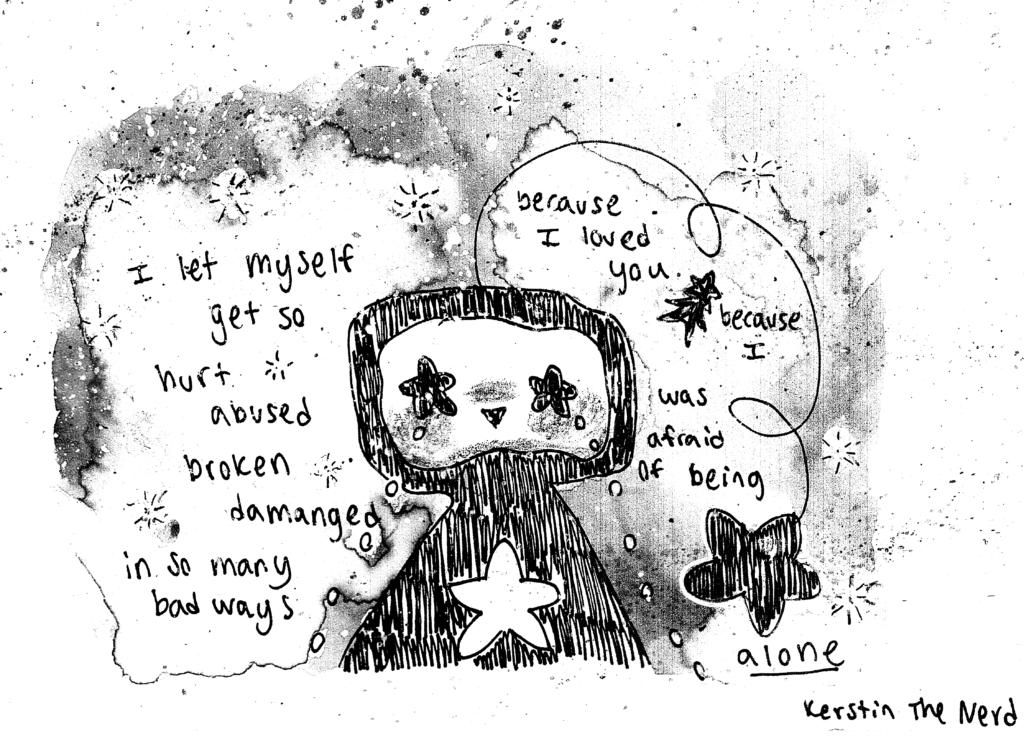 I let myself
get so
hurt
abused
broken
damanged
in so many
bad ways
because
I loved
you.
because
I
was
afraid
of being
alone
Kerstin The Nerd